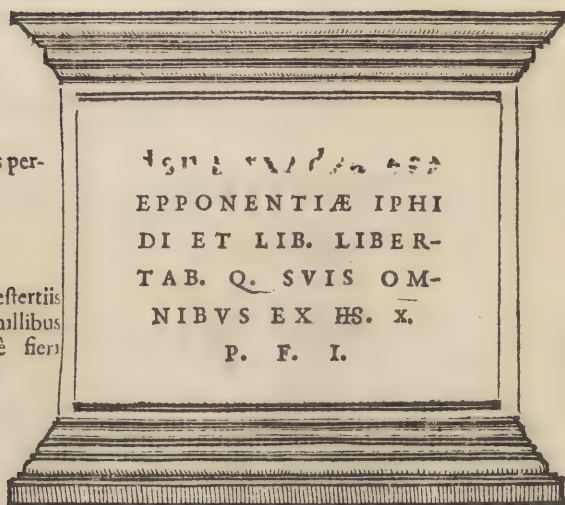 s per-
eſtertiis
millibus
è fieri
EPPONENTIÆ IPHI
DI ET LIB. LIBER-
TAB. Q. SVIS OM-
NIBVS EX HS. X̅.
P. F. I.